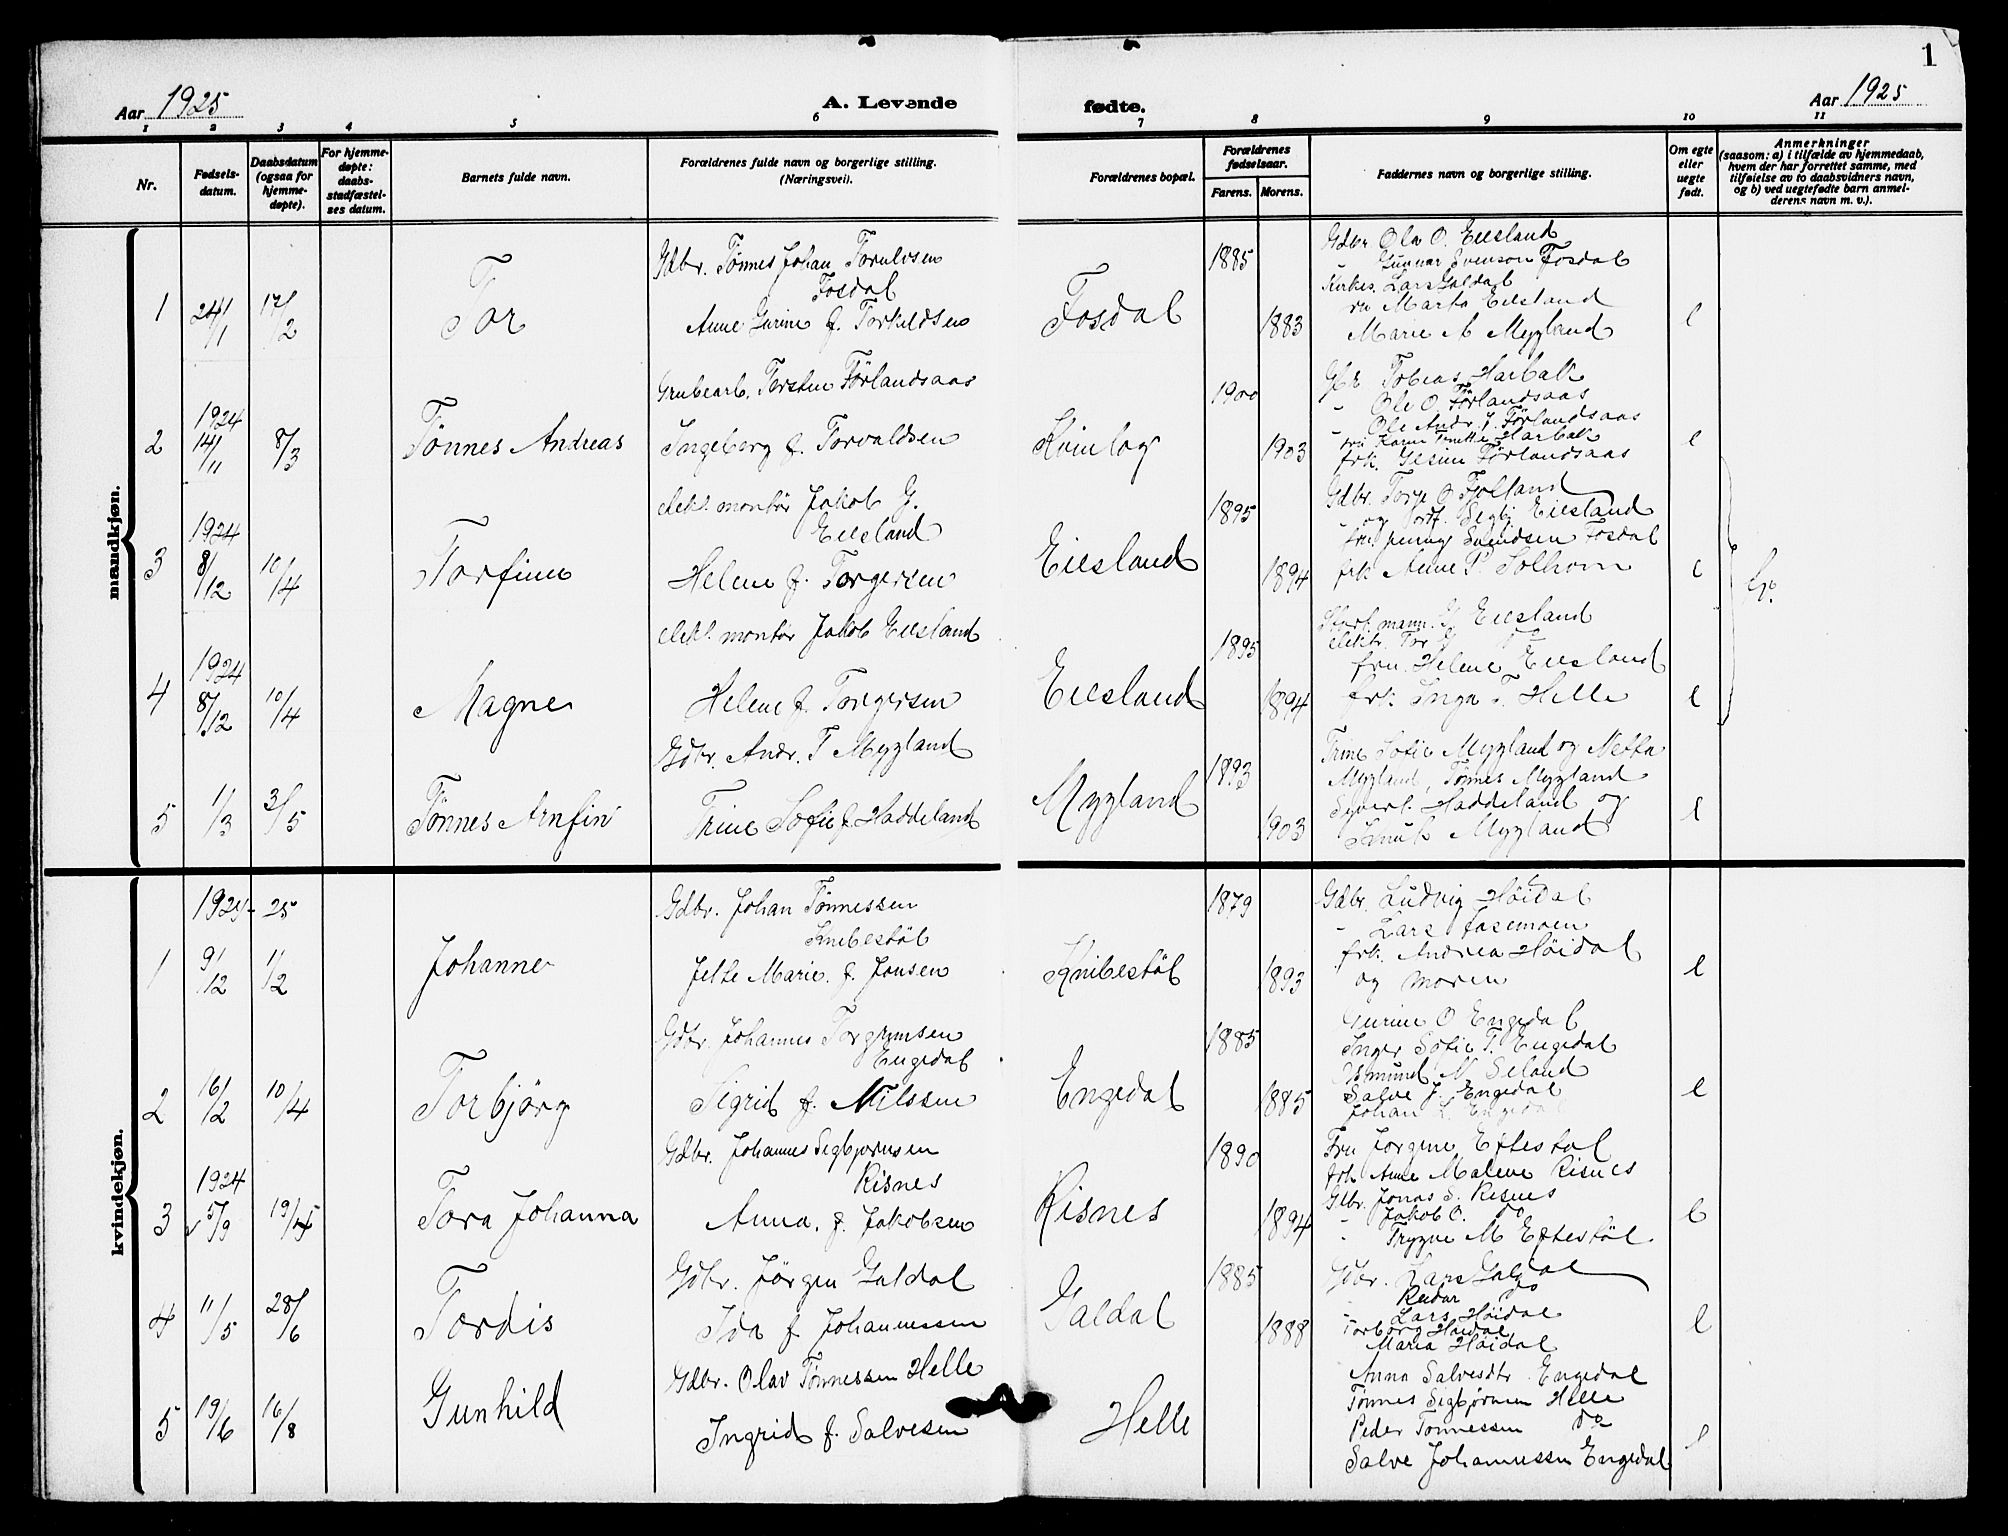 1
Aar 1925
A. Levende
fødte.
Aar 1925
1 2 3 4 5 6 7 8 9 10 11
Nr.
Fødsels-
datum.
Daabsdatum
(ogsaa for
hjemme-
døpte).
For hjemme-
døpte:
daabs-
stadfæstel-
ses datum.
Barnets fulde navn.
Forældrenes fulde navn og borgerlige stilling.
(Næringsvei).
Forældrenes bopæl.
Forældrenes
fødselsaar.
Farens. Morens.
Faddernes navn og borgerlige stilling.
Om egte
eller
uegte
født.
Anmerkninger
(saasom: a) i tilfælde av hjemmedaab,
hvem der har forrettet samme, med
tilføielse av to daabsvidners navn,
og b) ved uegtefødte barn anmel-
derens navn m. v.).
mandkjøn.
1
24/1
17/2
Tor
Gdbr. Tønnes Johan
Fosdal
Anne Gurine f. Torkildsen
Fosdal
1885
1883
Gdbr Ola O. Eiesland
Gunnar Svenson Fosdal
Kirkes. Lars Galdal
Marta Eiesland
Marie M Mygland
e
2
1924
14/11
8/3
Tønnes Andreas
Grubearb. Torsten Førlandsaas
Ingeborg f. Torvaldsen
Kvinlog
1900
1903
Tobias Harbak
" Ole O. Førlandsaas
" Ole Andr. J. Førlandsaas
Harbak
frk. Gesine Førlandsaas
e
3
1924
8/12
10/4
Torfinn
elekt. montør Jakob G.
Eiesland
Helene f. Torgersen
Eiesland
1895
1894
Gdbr. Torje O Fjotland
og Eiesland
Svendsen Fosdal
frk Anne P. Solhom
e
4
1924
8/12
10/4
Magne
elekt. montør Jakob Eiesland
Helene f. Torgersen
Eiesland
1895
1894
G Eiesland
elektr. Tor G
fru Helene Eiesland
frk. Inga T. Helle
e
5
1/3
3/5
Tønnes Arnfin
Gdbr. Andr. T Mygland
Trine Sofie f. Haddeland
Mygland
1893
1903
Trine Sofie Mygland og Netta
Mygland, Tønnes Mygland
Syvert Haddeland og
Knut Mygland
e
kvindekjøn.
1
1924-25
9/12
1/2
Johanne
Gdbr. Johan Tønnessen
Knibestøl
Jette Marie f. Jonsen
Knibestøl
1879
1893
Gdbr. Ludvig Høidal
" Lars Fasemoen
frk. Andrea Høidal
og moren
e
2
16/2
10/4
Torbjørg
Gdbr. Johannes Torgrimsen
Engedal
Sigrid f. Nilssen
Engedal
1885
1885
Gurine O Engedal
Inger Sofie T. Engedal
Osmund N Seland
Salve J. Engedal
Johan Engedal
e
3
1924
5/9
Tora Johanna
Gdbr. Johannes Sigbjørnsen
Risnes
Anna f. Jakobsen
Risnes
1890
1894
Fru Jorgine Eftestøl
frk Anne Malene Risnes
Gdbr. Jonas S. Risnes
" Jakob O. do
" Trygve M Eftestøl
e
4
11/5
28/6
Tordis
Gdbr. Jørgen Galdal
Ida f. Johannessen
Galdal
1885
1888
Gdbr. Lars Galdal
Reidar do
" Lars Høidal
Torborg Høidal
Maria Høidal
e
5
19/6
16/8
Gunhild
Gdbr. Olav Tønnessen Helle
Ingrid f. Salvesen
Helle
Anna Salvesdtr. Engedal
Tønnes Sigbjørnsen Helle
Peder Tønnessen do
Salve Johannessen Engedal
e